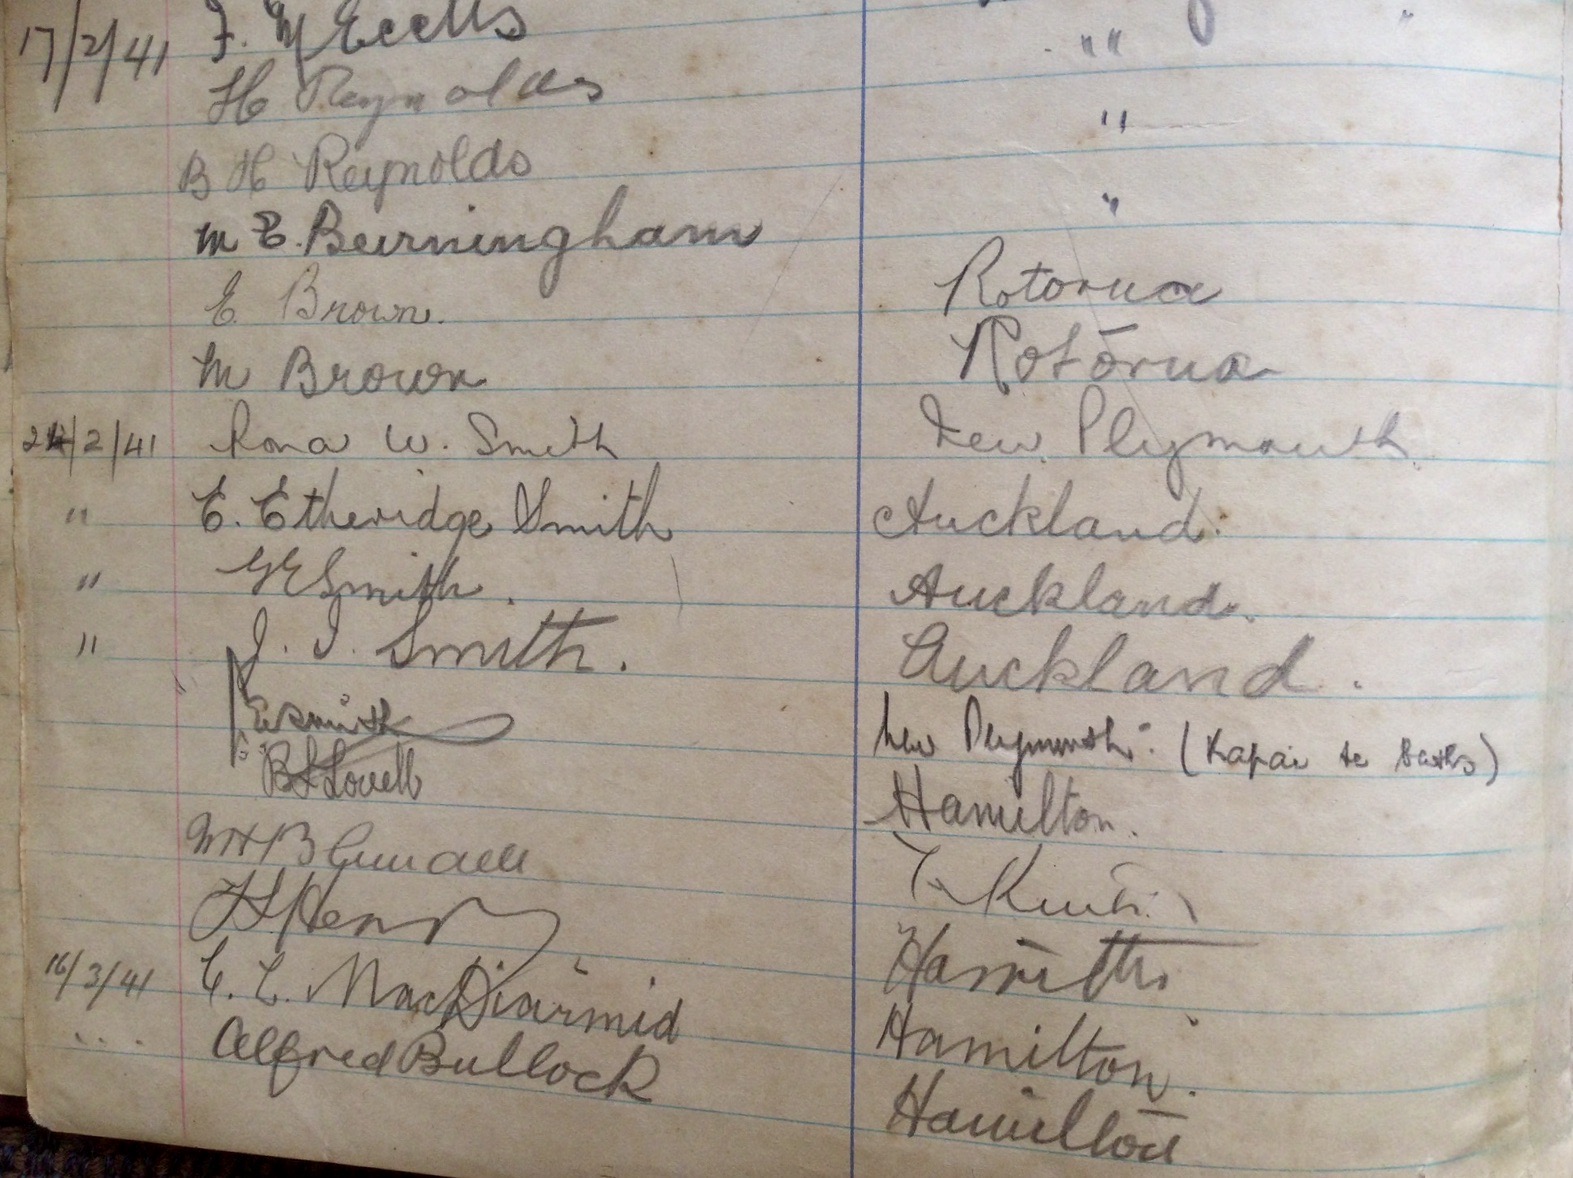 17/2/41 F. M Eccles " " "
H Reynolds "
B H Reynolds "
M E. Burningham Rotorua
E. Brown. Rotorua
M Brown New Plymouth.
2/2/41 Rona W. Smith Auckland.
" E. Etheridge Smith Auckland.
" G E Smith. Auckland.
" J. I. Smith. New Plymouth. (Kapai te baths)
E. Smith Hamilton.
B L Lovell T. Kuiti
W H B
H Henry Hamilton
16/3/41 C. L. MacDiarmid Hamilton.
.... Alfred Bullock Hamilton